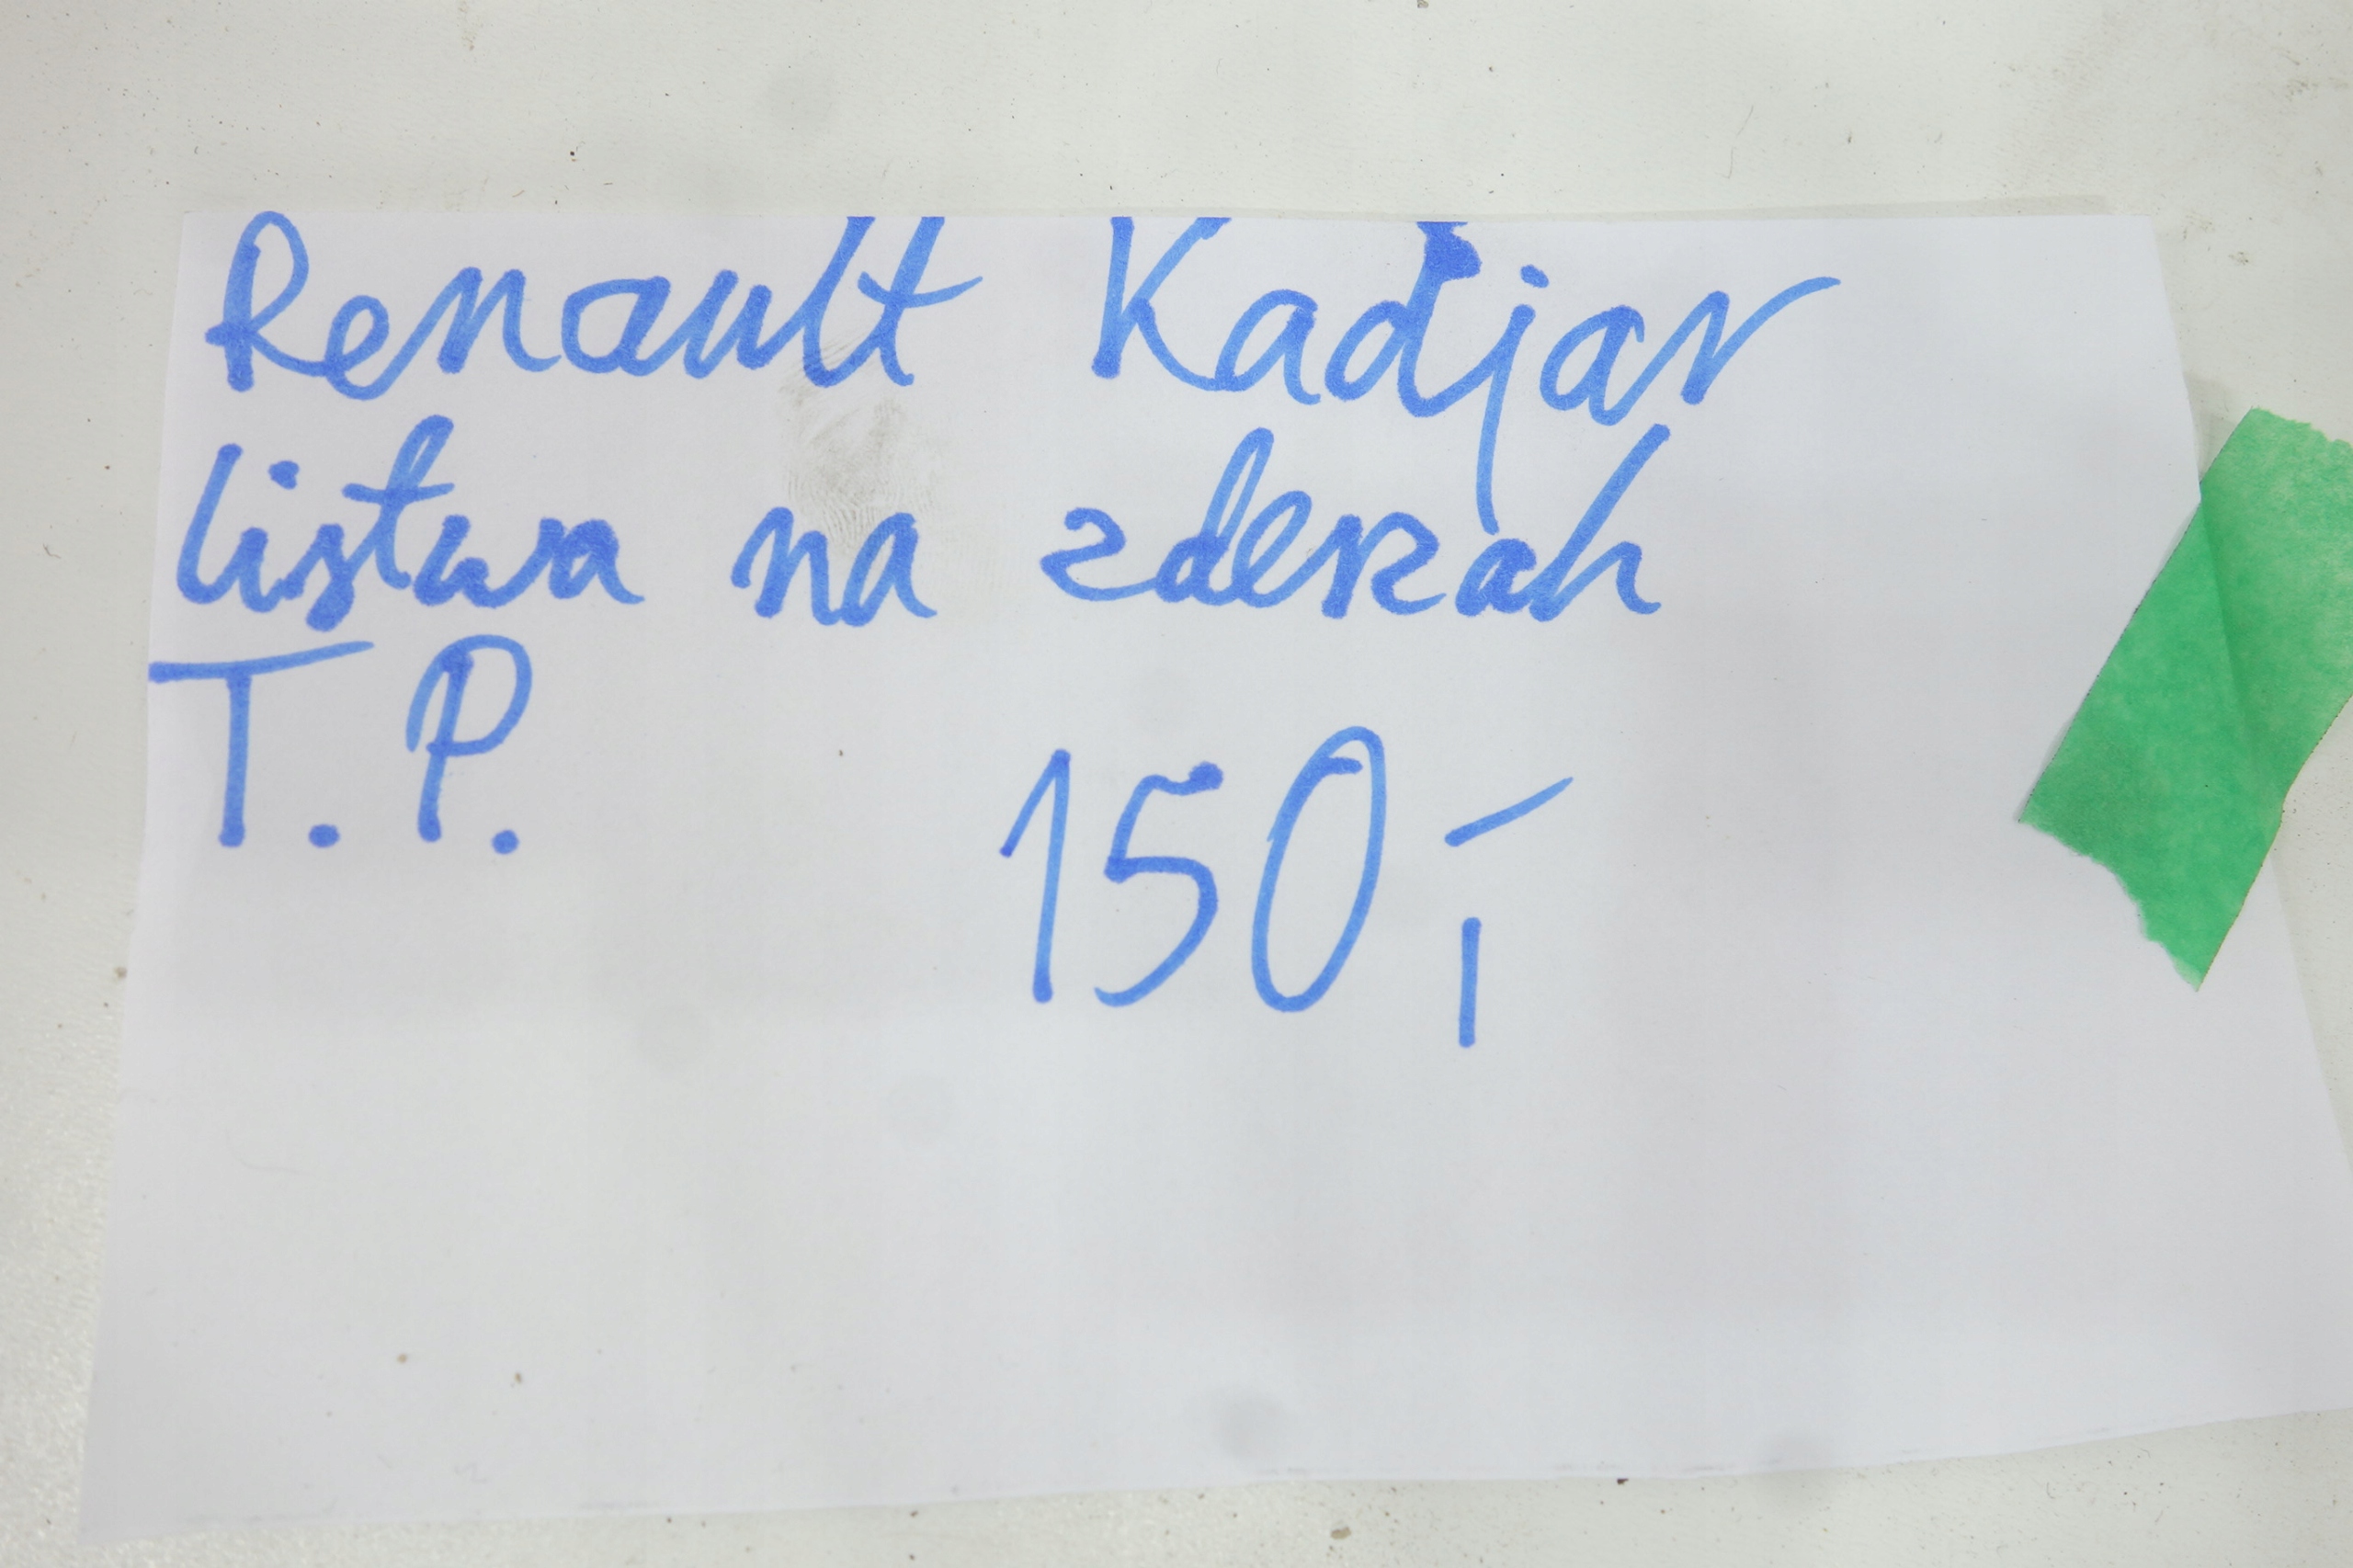 Renault Kadjar
listwa na zderzak
T. P.
150,-